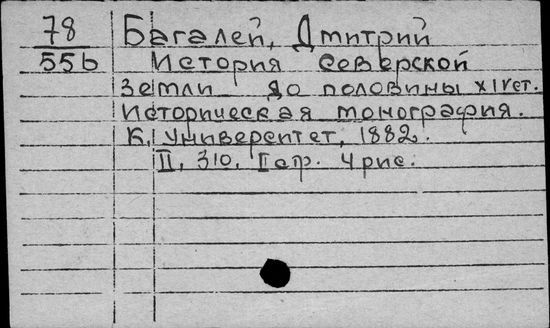 78 Багалей, Дмитрий
556 История северской
земли до половины XIV ст.
Историческая монография.
К., Университет, 1882.
II, 310, I стр. 4 рис.